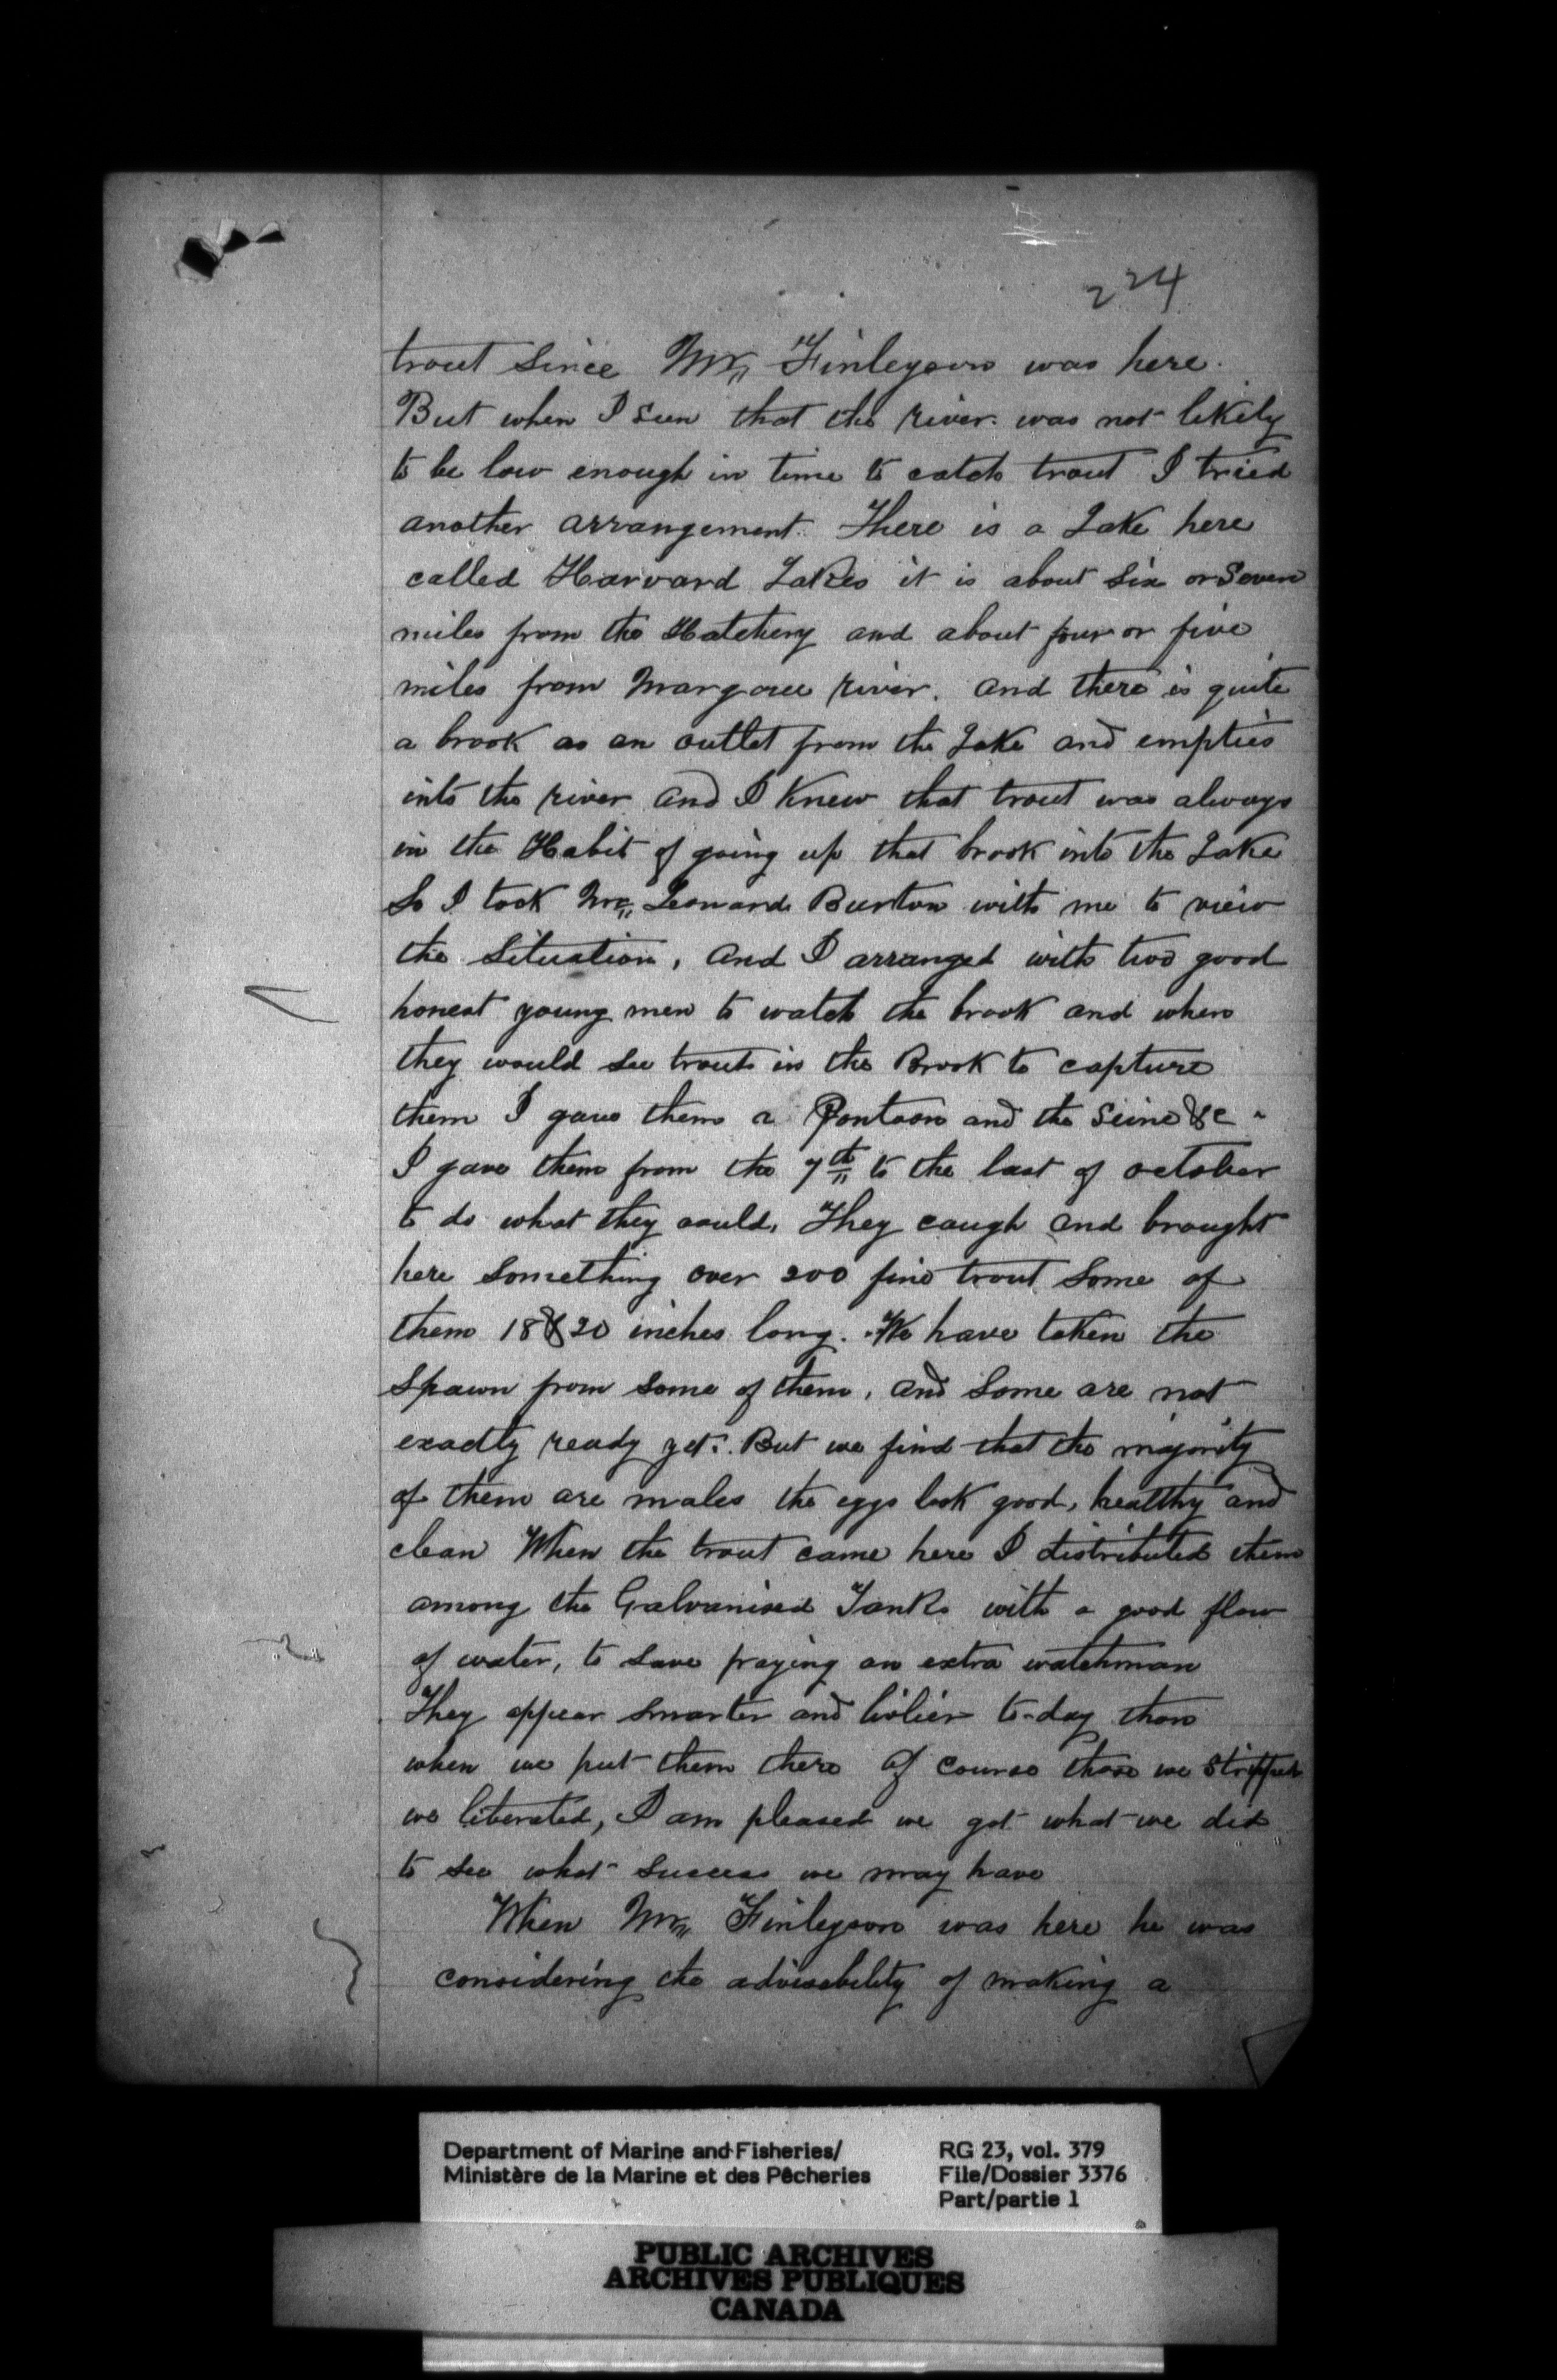 224
trout since Mr, Finleyson was here.
But when I seen that the river was not likely
to be low enough in time to catch trout I tried
another arrangement. There is a Lake here
called Harvard Lakes it is about six or seven
miles from the Hatchery and about four or five
miles from Margaree river. and there is quite
a brook as an outlet from the Lake and empties
into the river and I knew that trout was always
in the Habit of going up that brook into the Lake
So I took Mr, Leonard Burton with me to view
the situation, and I arranged with two good
honest young men to watch the brook and when
they would see trout in the Brook to capture
them I gave them a Pontoon and the seine &c -
I gave them from the 7th to the last of october
to do what they could. They caugh and brought
here something over 200 fine trout some of
them 18 & 20 inches long. We have taken the
spawn from some of them, and some are not
exactly ready yet. But we find that the majority
of them are males the eggs look good, healthy and
clean When the trout came here I distributed them
among the Galvanised Tanks with a good flow
of water, to save paying an extra watchman
They appear smarter and livlier to-day than
when we put them there of course those we stripped
we liberated, I am pleased we got what we did
to see what success we may have
When Mr, Finleyson was here he was
considering the advisability of making a
Department of Marine and Fisheries/
Ministère de la Marine et des Pêcheries
RG 23, vol. 379
File/Dossier 3376
Part/partie 1
PUBLIC ARCHIVES
ARCHIVES PUBLIQUES
CANADA